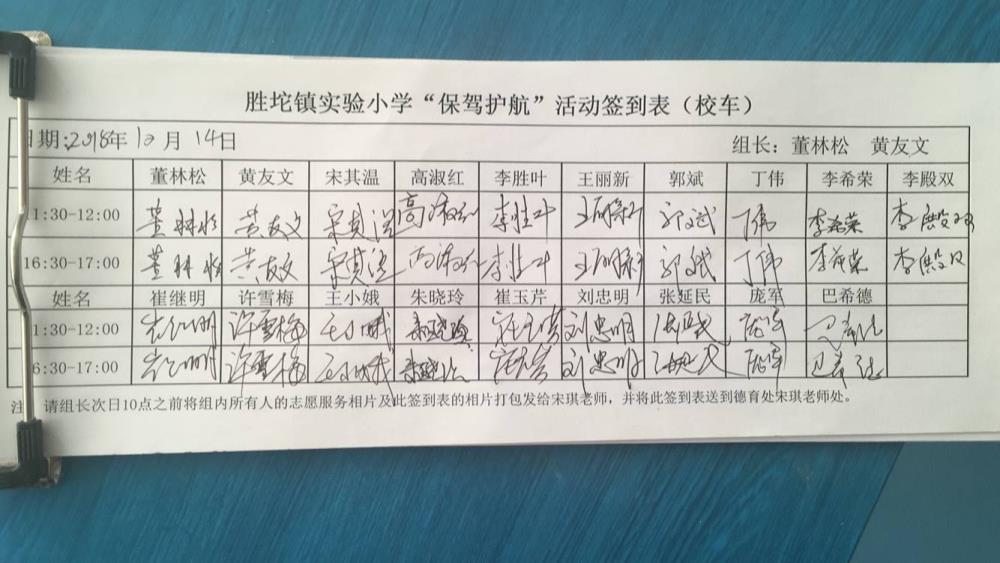 胜坨镇实验小学“保驾护航”活动签到表（校车）
日期:2018年12月14日 组长：董林松 黄友文
姓名 董林松 黄友文 宋其温 高淑红 李胜叶 王丽新 郭斌 丁伟 李希荣 李殿双
1:30-12:00 董林松 黄友文 宋其温 高淑红 李胜叶 王丽新 郭斌 丁伟 李希荣 李殿双
16:30-17:00 董林松 黄友文 宋其温 高淑红 李胜叶 王丽新 郭斌 丁伟 李希荣 李殿双
姓名 崔继明 许雪梅 王小娥 朱晓玲 崔玉芹 刘忠明 张延民 庞军 巴希德
1:30-12:00 崔继明 许雪梅 王小娥 朱晓玲 崔玉芹 刘忠明 张延民 庞军 巴希德
6:30-17:00 崔继明 许雪梅 王小娥 朱晓玲 崔玉芹 刘忠明 张延民 庞军 巴希德
注：请组长次日10点之前将组内所有人的志愿服务相片及此签到表的相片打包发给宋琪老师，并将此签到表送到德育处宋琪老师处。